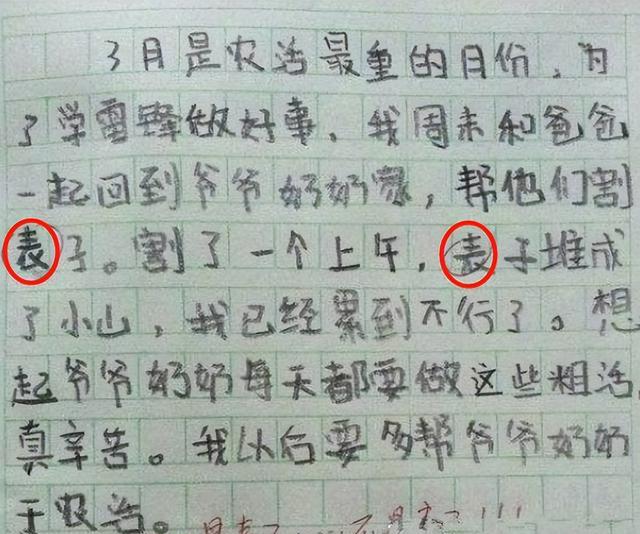 3月是农活最重的月份，为
了学雷锋做好事，我周末和爸爸
一起回到爷爷奶奶家，帮他们割
表子。割了一个上午，表子堆成
了小山，我已经累到不行了。想
起爷爷奶奶每天都要做这些粗活，
真辛苦。我以后要多帮爷爷奶奶
干农活。